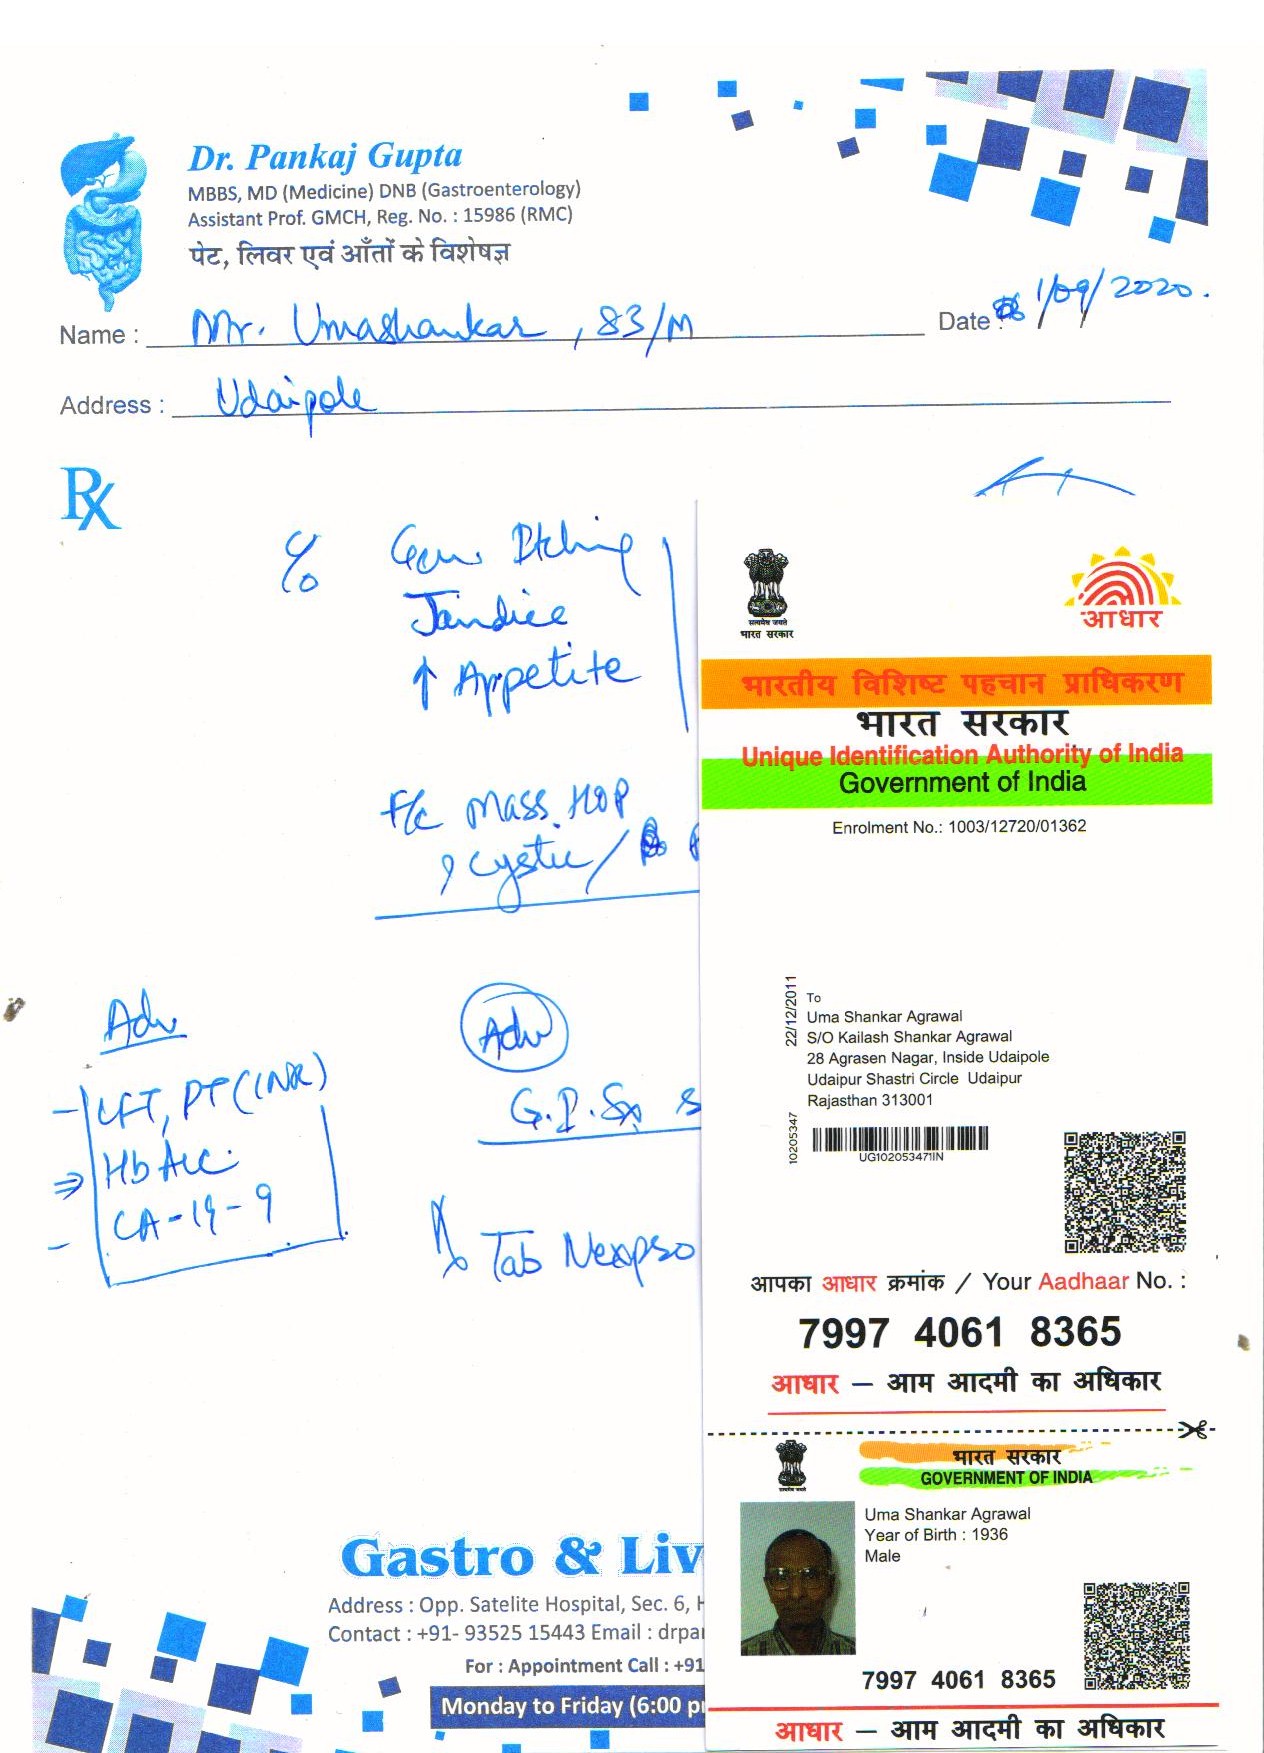 Dr. Pankaj Gupta
MBBS, MD (Medicine) DNB (Gastroenterology)
Assistant Prof. GMCH, Reg. No. : 15986 (RMC)
पेट, लिवर एवं आँतों के विशेषज्ञ
Name : Mr. Umashankar , 83/M
Date : 1/09/2020.
Address : Udaipole
Rx
c/o Gen Itching
Jaundice
↑ Appetite
F/c Mass HOP
? cystic /
Adv
- LFT, PT (INR)
⇒ HbA1c
- CA-19-9
Adv
G.I. Sx s
Rx Tab Nexpso
Gastro & Liv
Address : Opp. Satelite Hospital, Sec. 6, H
Contact : +91- 93525 15443 Email : drpa
For : Appointment Call : +91
Monday to Friday (6:00 p
सत्यमेव जयते
भारत सरकार
आधार
भारतीय विशिष्ट पहचान प्राधिकरण
भारत सरकार
Unique Identification Authority of India
Government of India
Enrolment No.: 1003/12720/01362
22/12/2011
To
Uma Shankar Agrawal
S/O Kailash Shankar Agrawal
28 Agrasen Nagar, Inside Udaipole
Udaipur Shastri Circle Udaipur
Rajasthan 313001
10205347
UG102053471IN
आपका आधार क्रमांक / Your Aadhaar No. :
7997 4061 8365
आधार — आम आदमी का अधिकार
भारत सरकार
GOVERNMENT OF INDIA
सत्यमेव जयते
Uma Shankar Agrawal
Year of Birth : 1936
Male
7997 4061 8365
आधार — आम आदमी का अधिकार